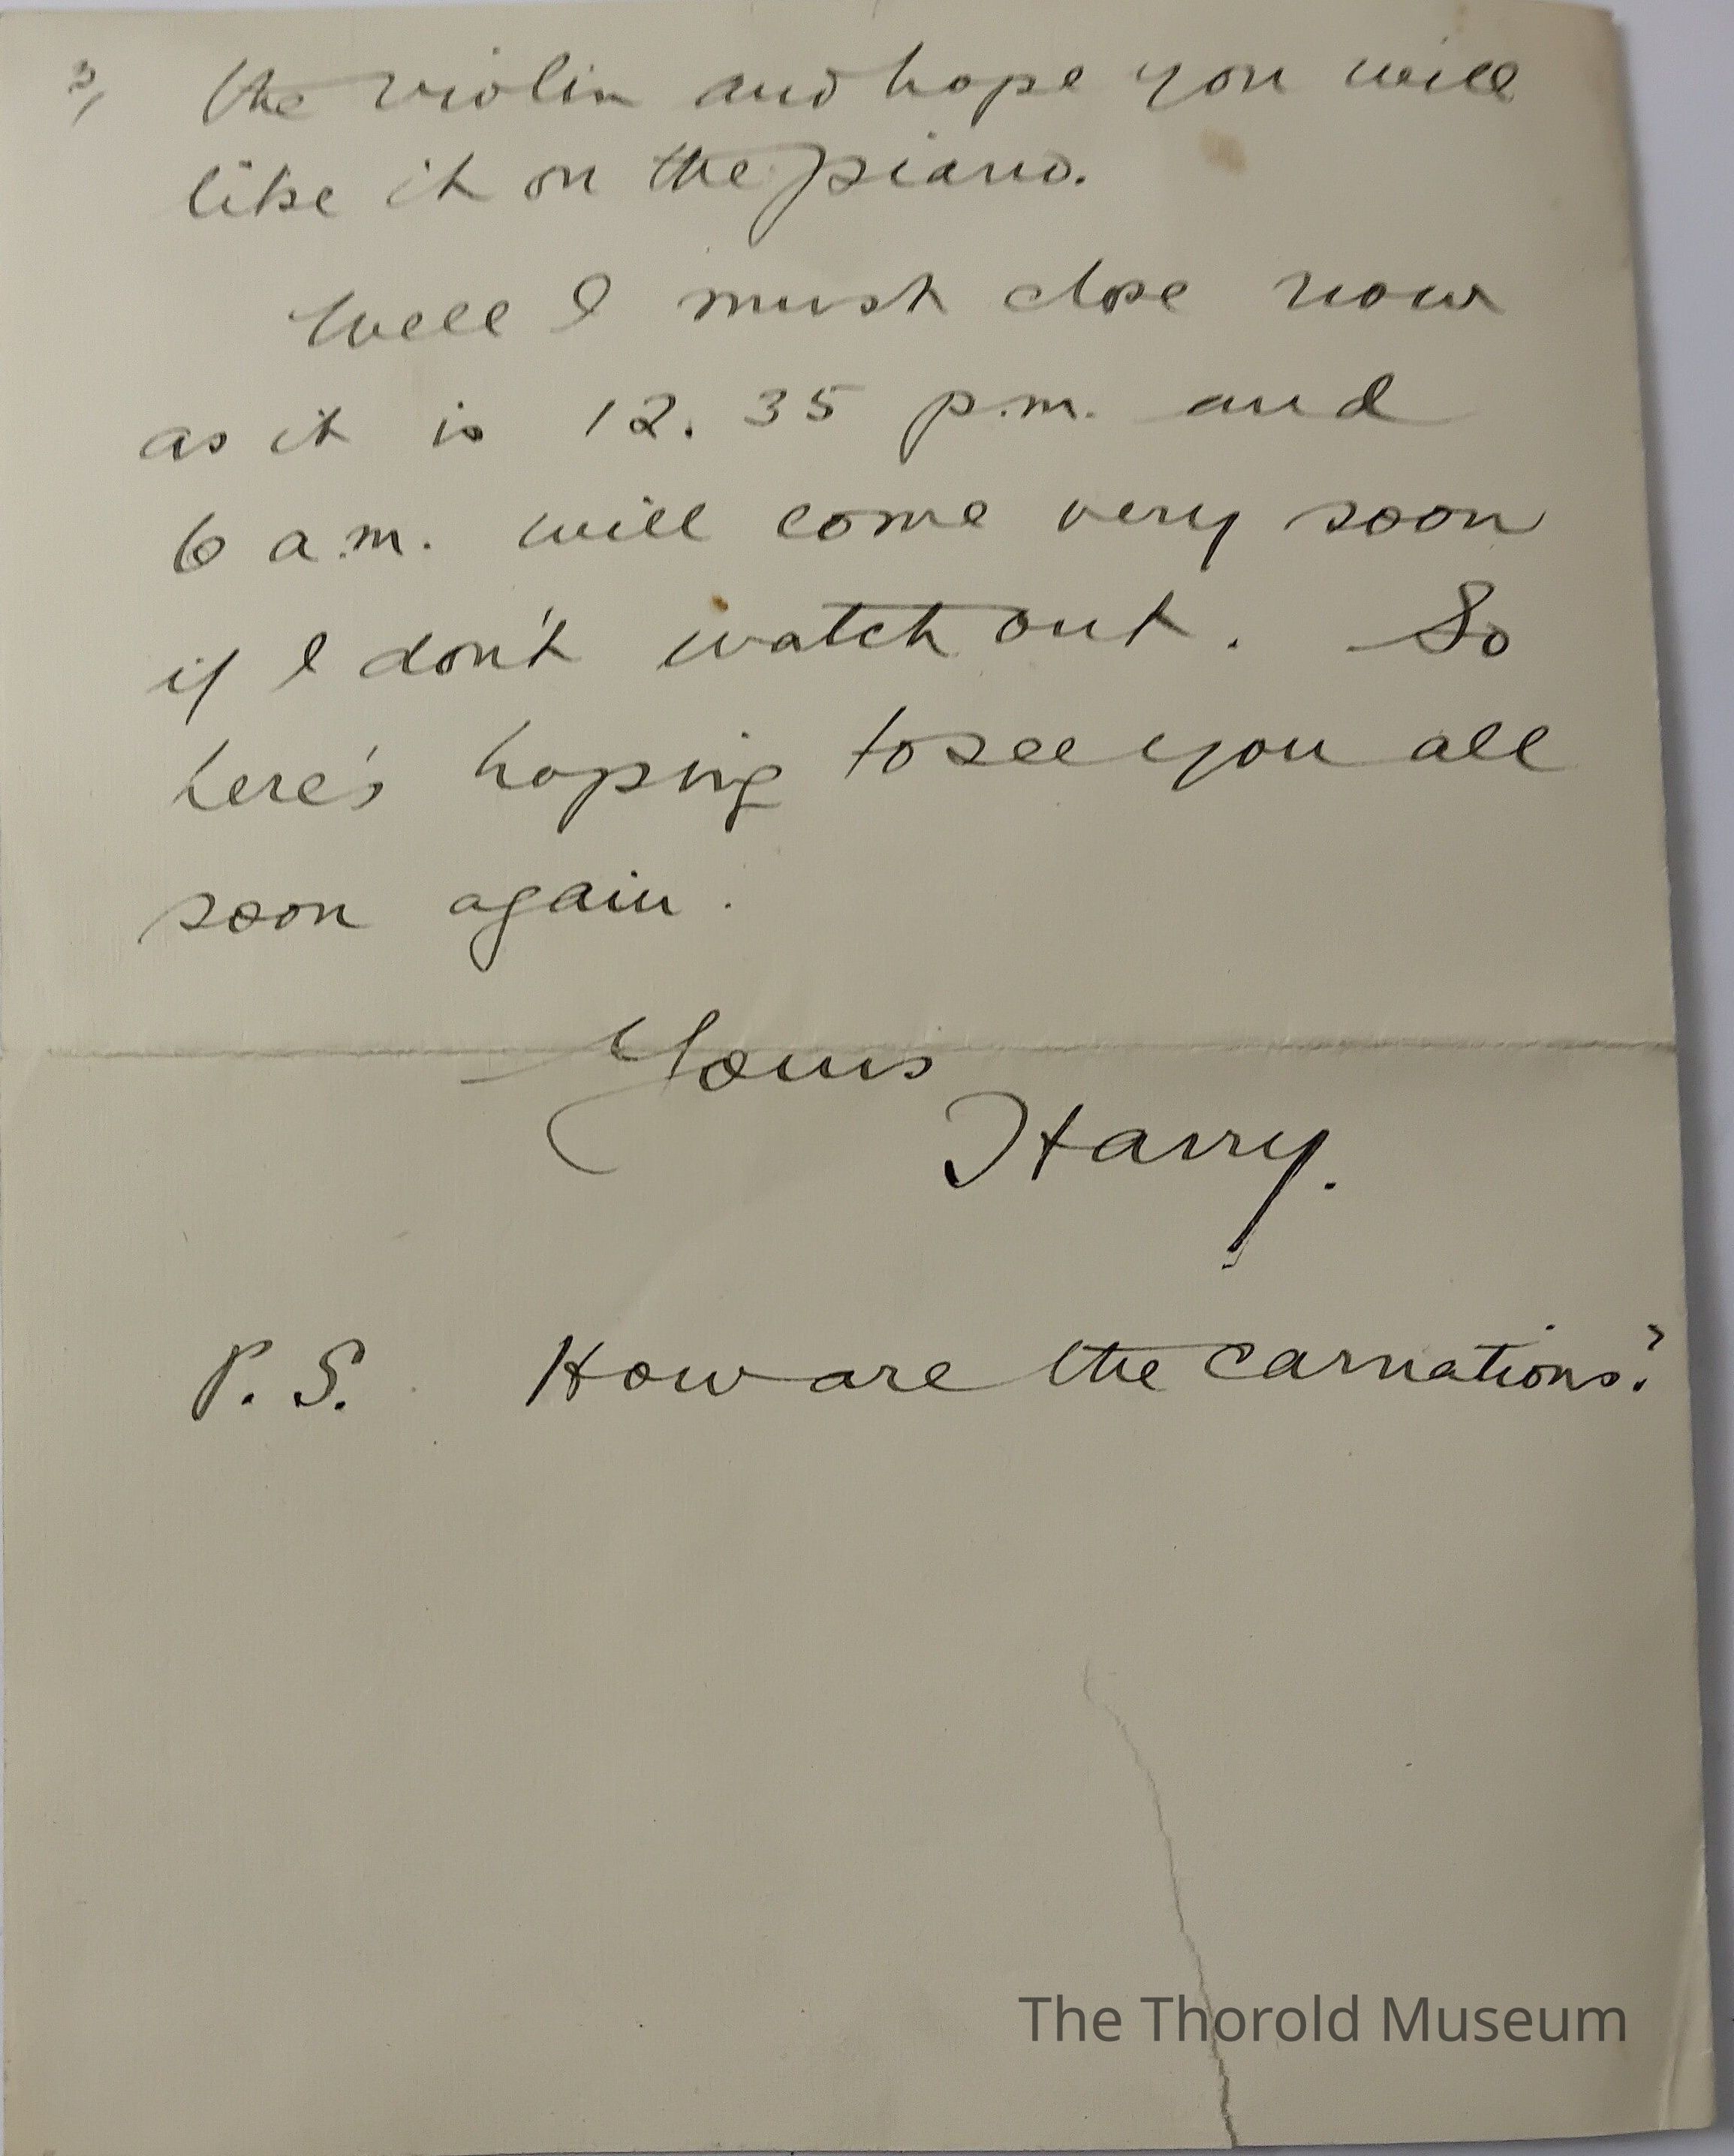 3/ the violin and hope you will
like it on the piano.
Well I must close now
as it is 12.35 p.m. and
6 a.m. will come very soon
if I don't watch out. So
here's hoping to see you all
soon again.
Yours
Harry.
P.S. How are the carnations?
The Thorold Museum